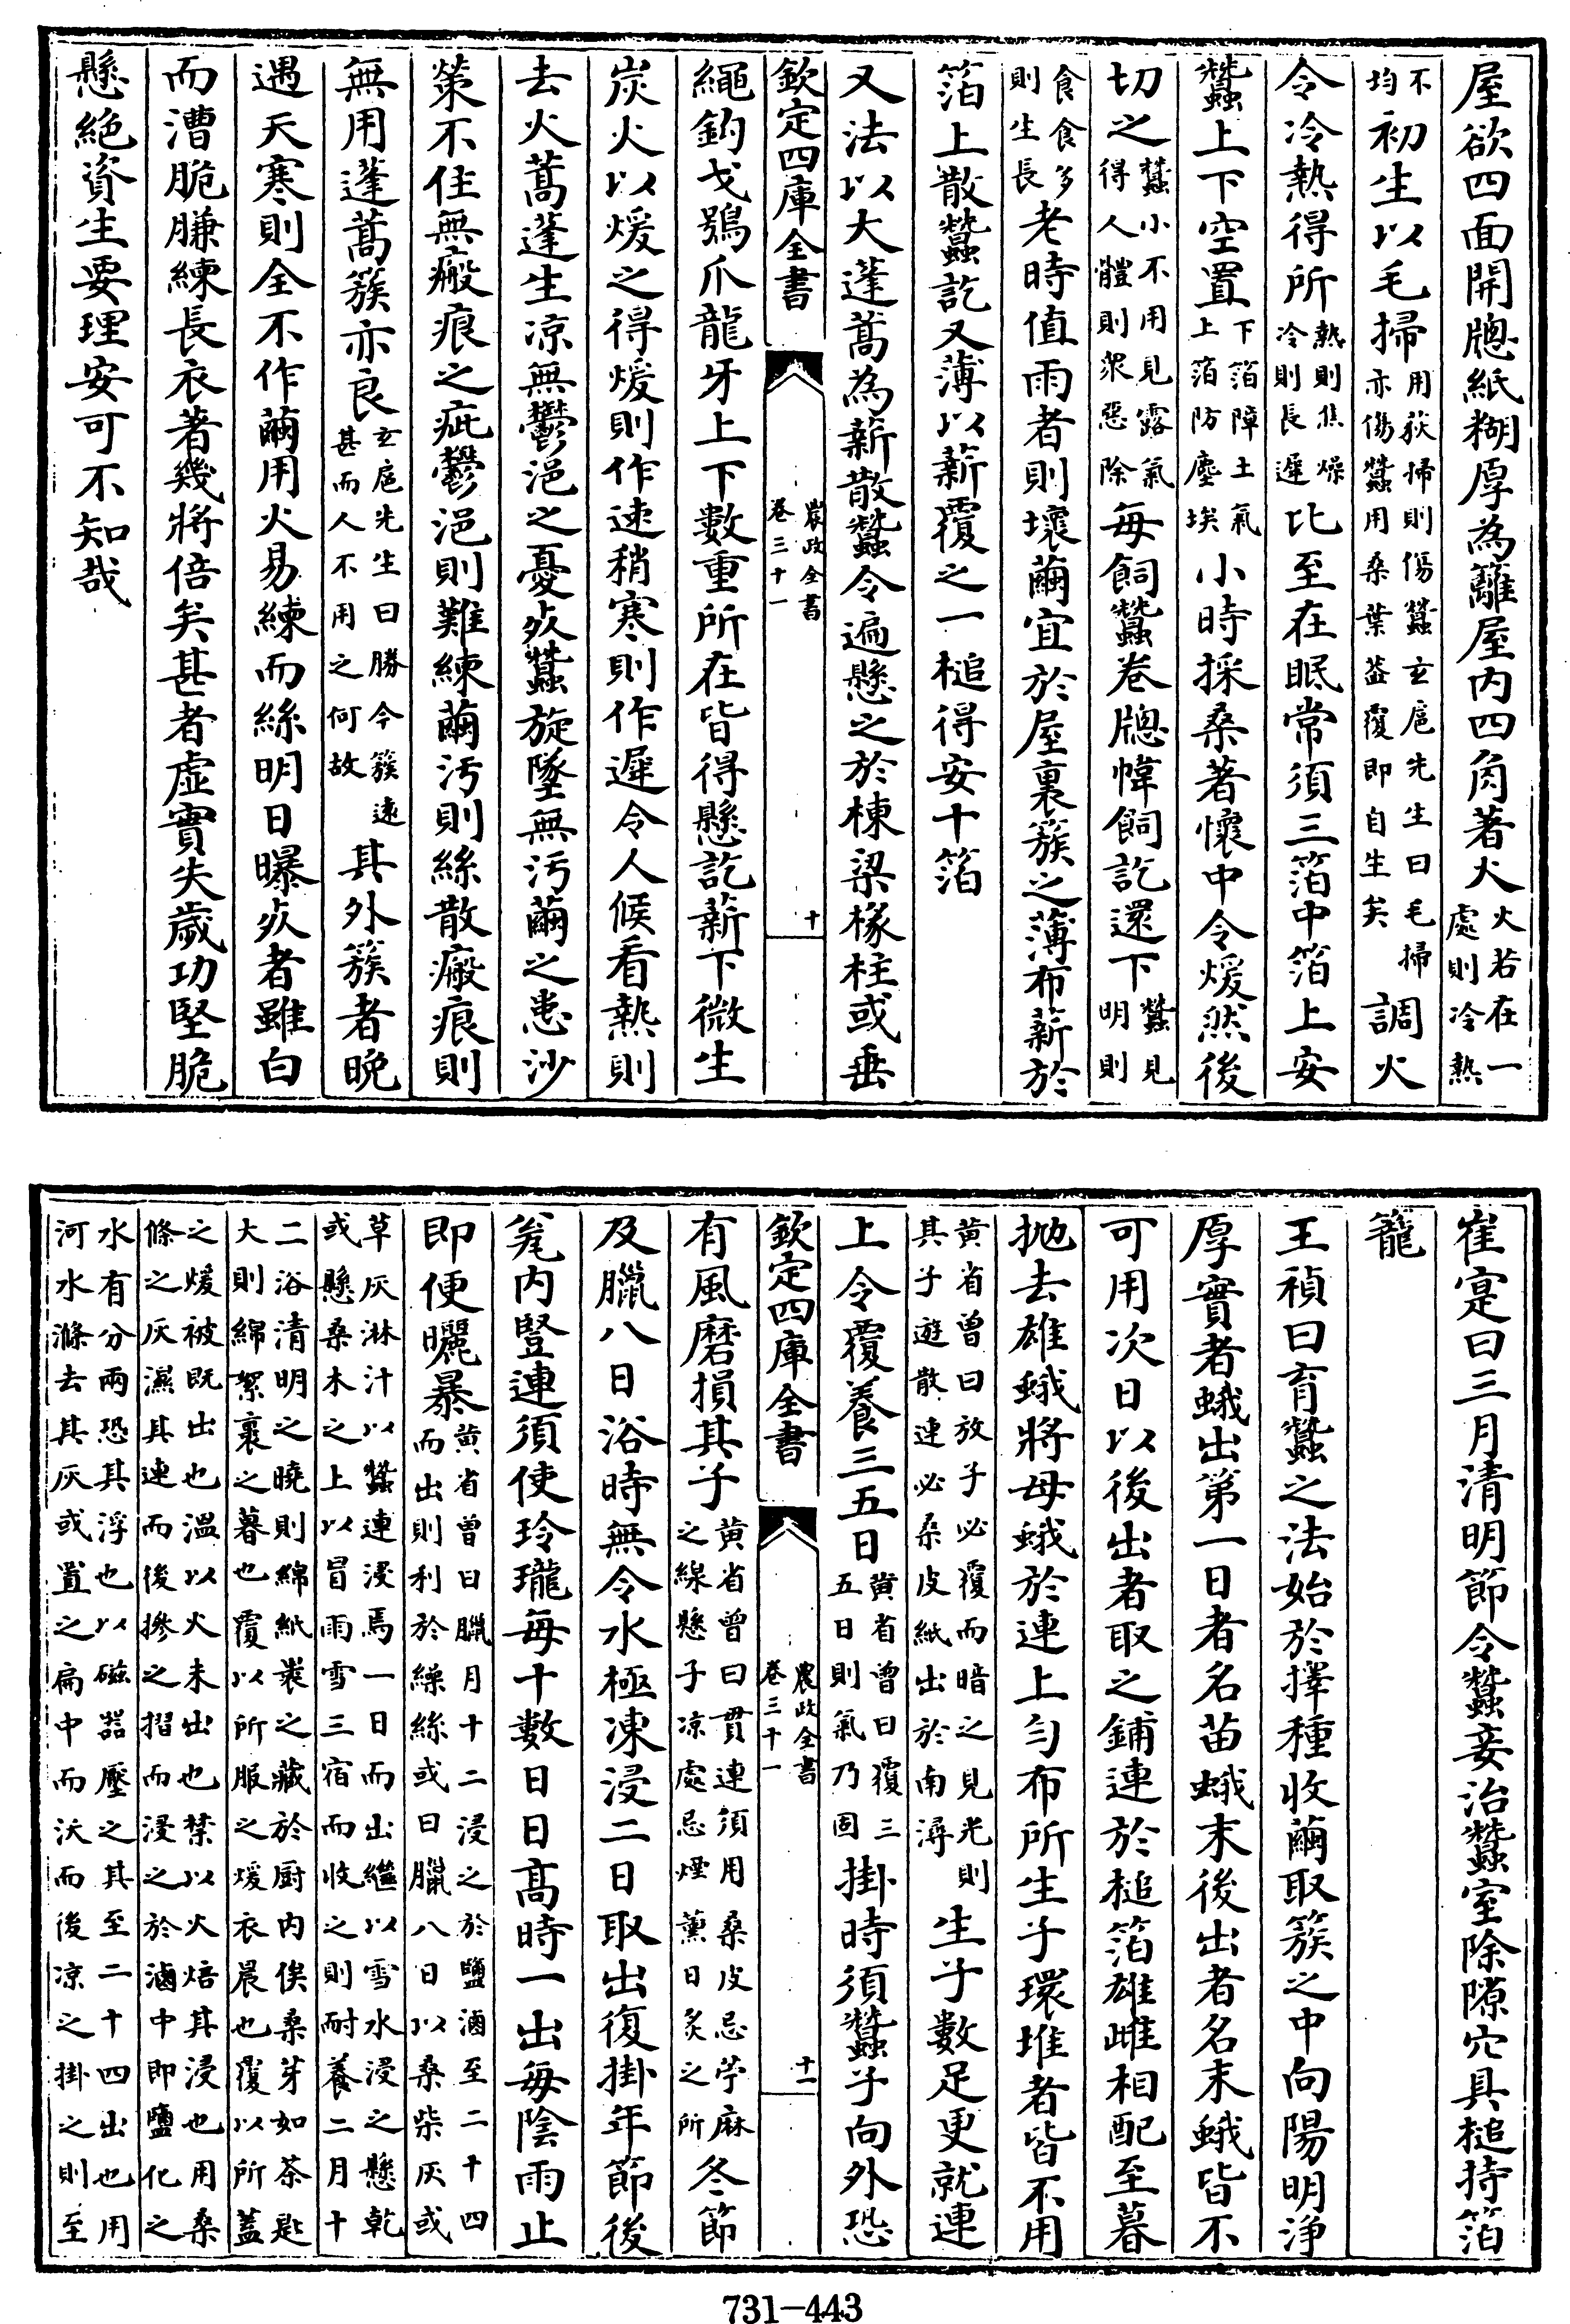 屋欲四面開牕紙糊厚為籬屋内四角著火火若在一處則冷熱
不均初生以毛掃用荻掃則傷蠶玄扈先生曰毛掃亦傷蠶用桑葉葢覆即自生矣調火
令冷熱得所熱則焦燥冷則長遲比至在眠常須三箔中箔上安
蠶上下空置下箔障土氣上箔防塵埃小時採桑著懷中令煖然後
切之蠶小不用見露氣得人體則衆惡除每飼蠶卷牕幃飼訖還下蠶見明則
食食多則生長老時值雨者則壞繭宜於屋裏簇之薄布薪於
箔上散蠶訖又薄以薪覆之一槌得安十箔
又法以大蓬蒿為薪散蠶令遍懸之於棟梁椽柱或垂
欽定四庫全書
農政全書
卷三十一
十
繩鈎弋鶚爪龍牙上下數重所在皆得懸訖薪下微生
炭火以煖之得煖則作速稍寒則作遲令人候看熱則
去火蒿蓬生凉無鬱浥之憂死蠶旋墜無汚繭之患沙
葉不住無瘢痕之疵鬱浥則難練繭汚則絲散瘢痕則
無用蓬蒿簇亦良玄扈先生曰勝今簇遠甚而人不用之何故其外簇者晚
遇天寒則全不作繭用火易練而絲明日曝死者雖白
而漕脆膁練長衣著幾將倍矣甚者虚實失歲功堅脆
懸絶資生要理安可不知哉
崔寔曰三月清明節令蠶妾治蠶室除隙穴具槌持箔
籠
王禎曰育蠶之法始於擇種收繭取簇之中向陽明淨
厚實者蛾出第一日者名苗蛾末後出者名末蛾皆不
可用次日以後出者取之鋪連於槌箔雄雌相配至暮
抛去雄蛾將母蛾於連上勻布所生子環堆者皆不用
黄省曾曰放子必覆而暗之見光則其子遊散連必桑皮紙出於南潯生子數足更就連
上令覆養三五日黄省曾曰覆三五日則氣乃固掛時須蠶子向外恐
欽定四庫全書
農政全書
卷三十一
十一
有風磨損其子黄省曾曰貫連須用桑皮忌苧麻之線懸子凉處忌煙薰日炙之所冬節
及臘八日浴時無令水極凍浸二日取出復掛年節後
甕内豎連須使玲瓏每十數日日高時一出每陰雨止
即便曬暴黄省曾曰臘月十二浸之於鹽滷至二十四而出則利於繰絲或曰臘八日以桑柴灰或
草灰淋汁以蠶連浸焉一日而出繼以雪水浸之懸乾或懸桑木之上以冒雨雪三宿而收之則耐養二月十
二浴清明之曉則綿紙裝之藏於厨内俟桑芽如茶匙大則綿絮裹之暮也覆以所服之煖衣晨也覆以所蓋
之煖被既出也温以火未出也禁以火焙其浸也用桑條之灰濕其連而後摻之摺而浸之於滷中即鹽化之
水有分兩恐其浮也以磁器壓之其至二十四出也用河水滌去其灰或置之扁中而沃而後凉之掛之則至
731-443